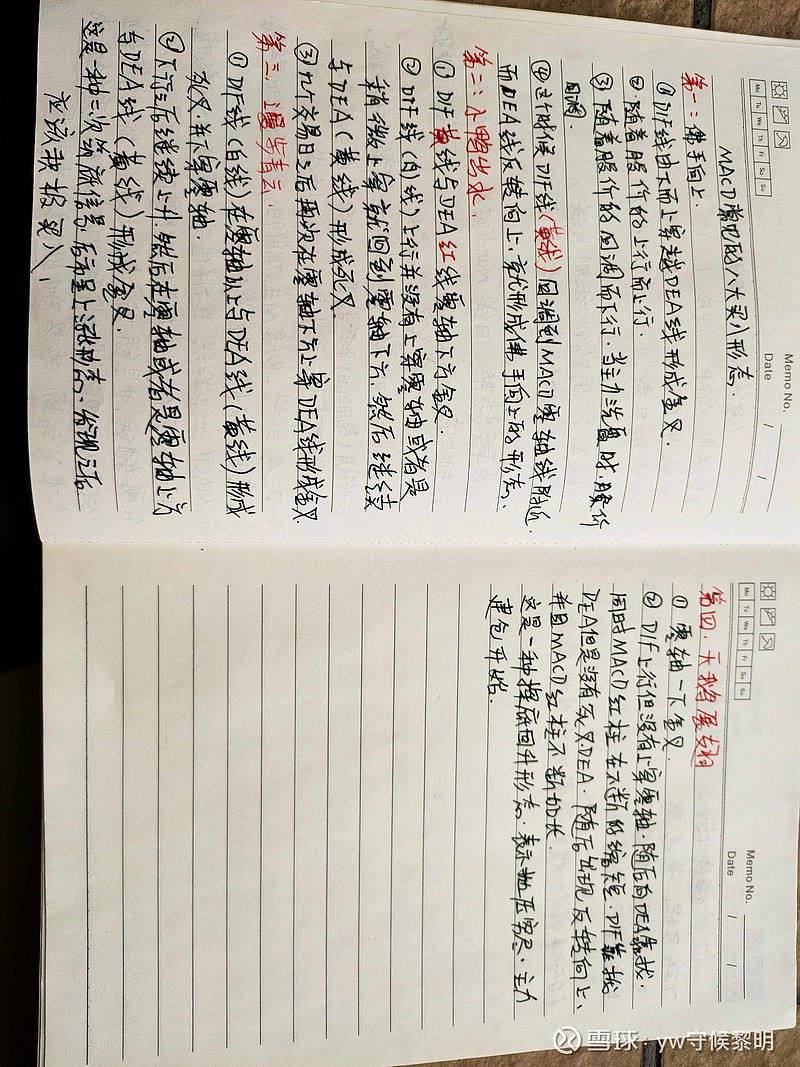 Memo No.
Date / /
Mo Tu We Th Fr Sa Su
MACD常见的八大买入形态.
第一:佛手向上.
① DIF线由下而上穿越DEA线形成金叉.
②.随着股价的上行而上行.
③ 随着股价的回调而下行.当主力洗盘时.股价
回调.
④ 这个时候DIF线(黄线)回调到MACD零轴线附近.
而DEA线反转向上.就形成佛手向上的形态.
第二:小鸭出水.
① DIF黄线与DEA红线零轴下方金叉.
② DIF线(白线)上行并没有上穿零轴或者是
稍微上穿就回到零轴下方.然后继续
与DEA(黄线)形成死叉
③ 几个交易日之后再次在零轴下方上穿DEA线形成金叉.
第三.漫步青云.
① DIF线(白线)在零轴以上与DEA线(黄线)形成
死叉.并下穿零轴.
② 下行之后继续上升.然后在零轴或者是零轴上方
与DEA线(黄线)形成金叉.
这是一种二次筑底信号.后市呈上涨形态.发现之后
应该积极买入.
Memo No.
Date / /
Mo Tu We Th Fr Sa Su
第四.天鹅展翅
① 零轴一下金叉.
② DIF上行但没有上穿零轴.随后向DEA靠拢.
同时MACD红柱在不断的缩短.DIF靠拢
DEA但是没有死叉DEA.随后出现反转向上.
并且MACD红柱不断加长.
这是一种探底回升形态.表示抛压穷尽.主力
建仓开始.
雪球:yw守候黎明